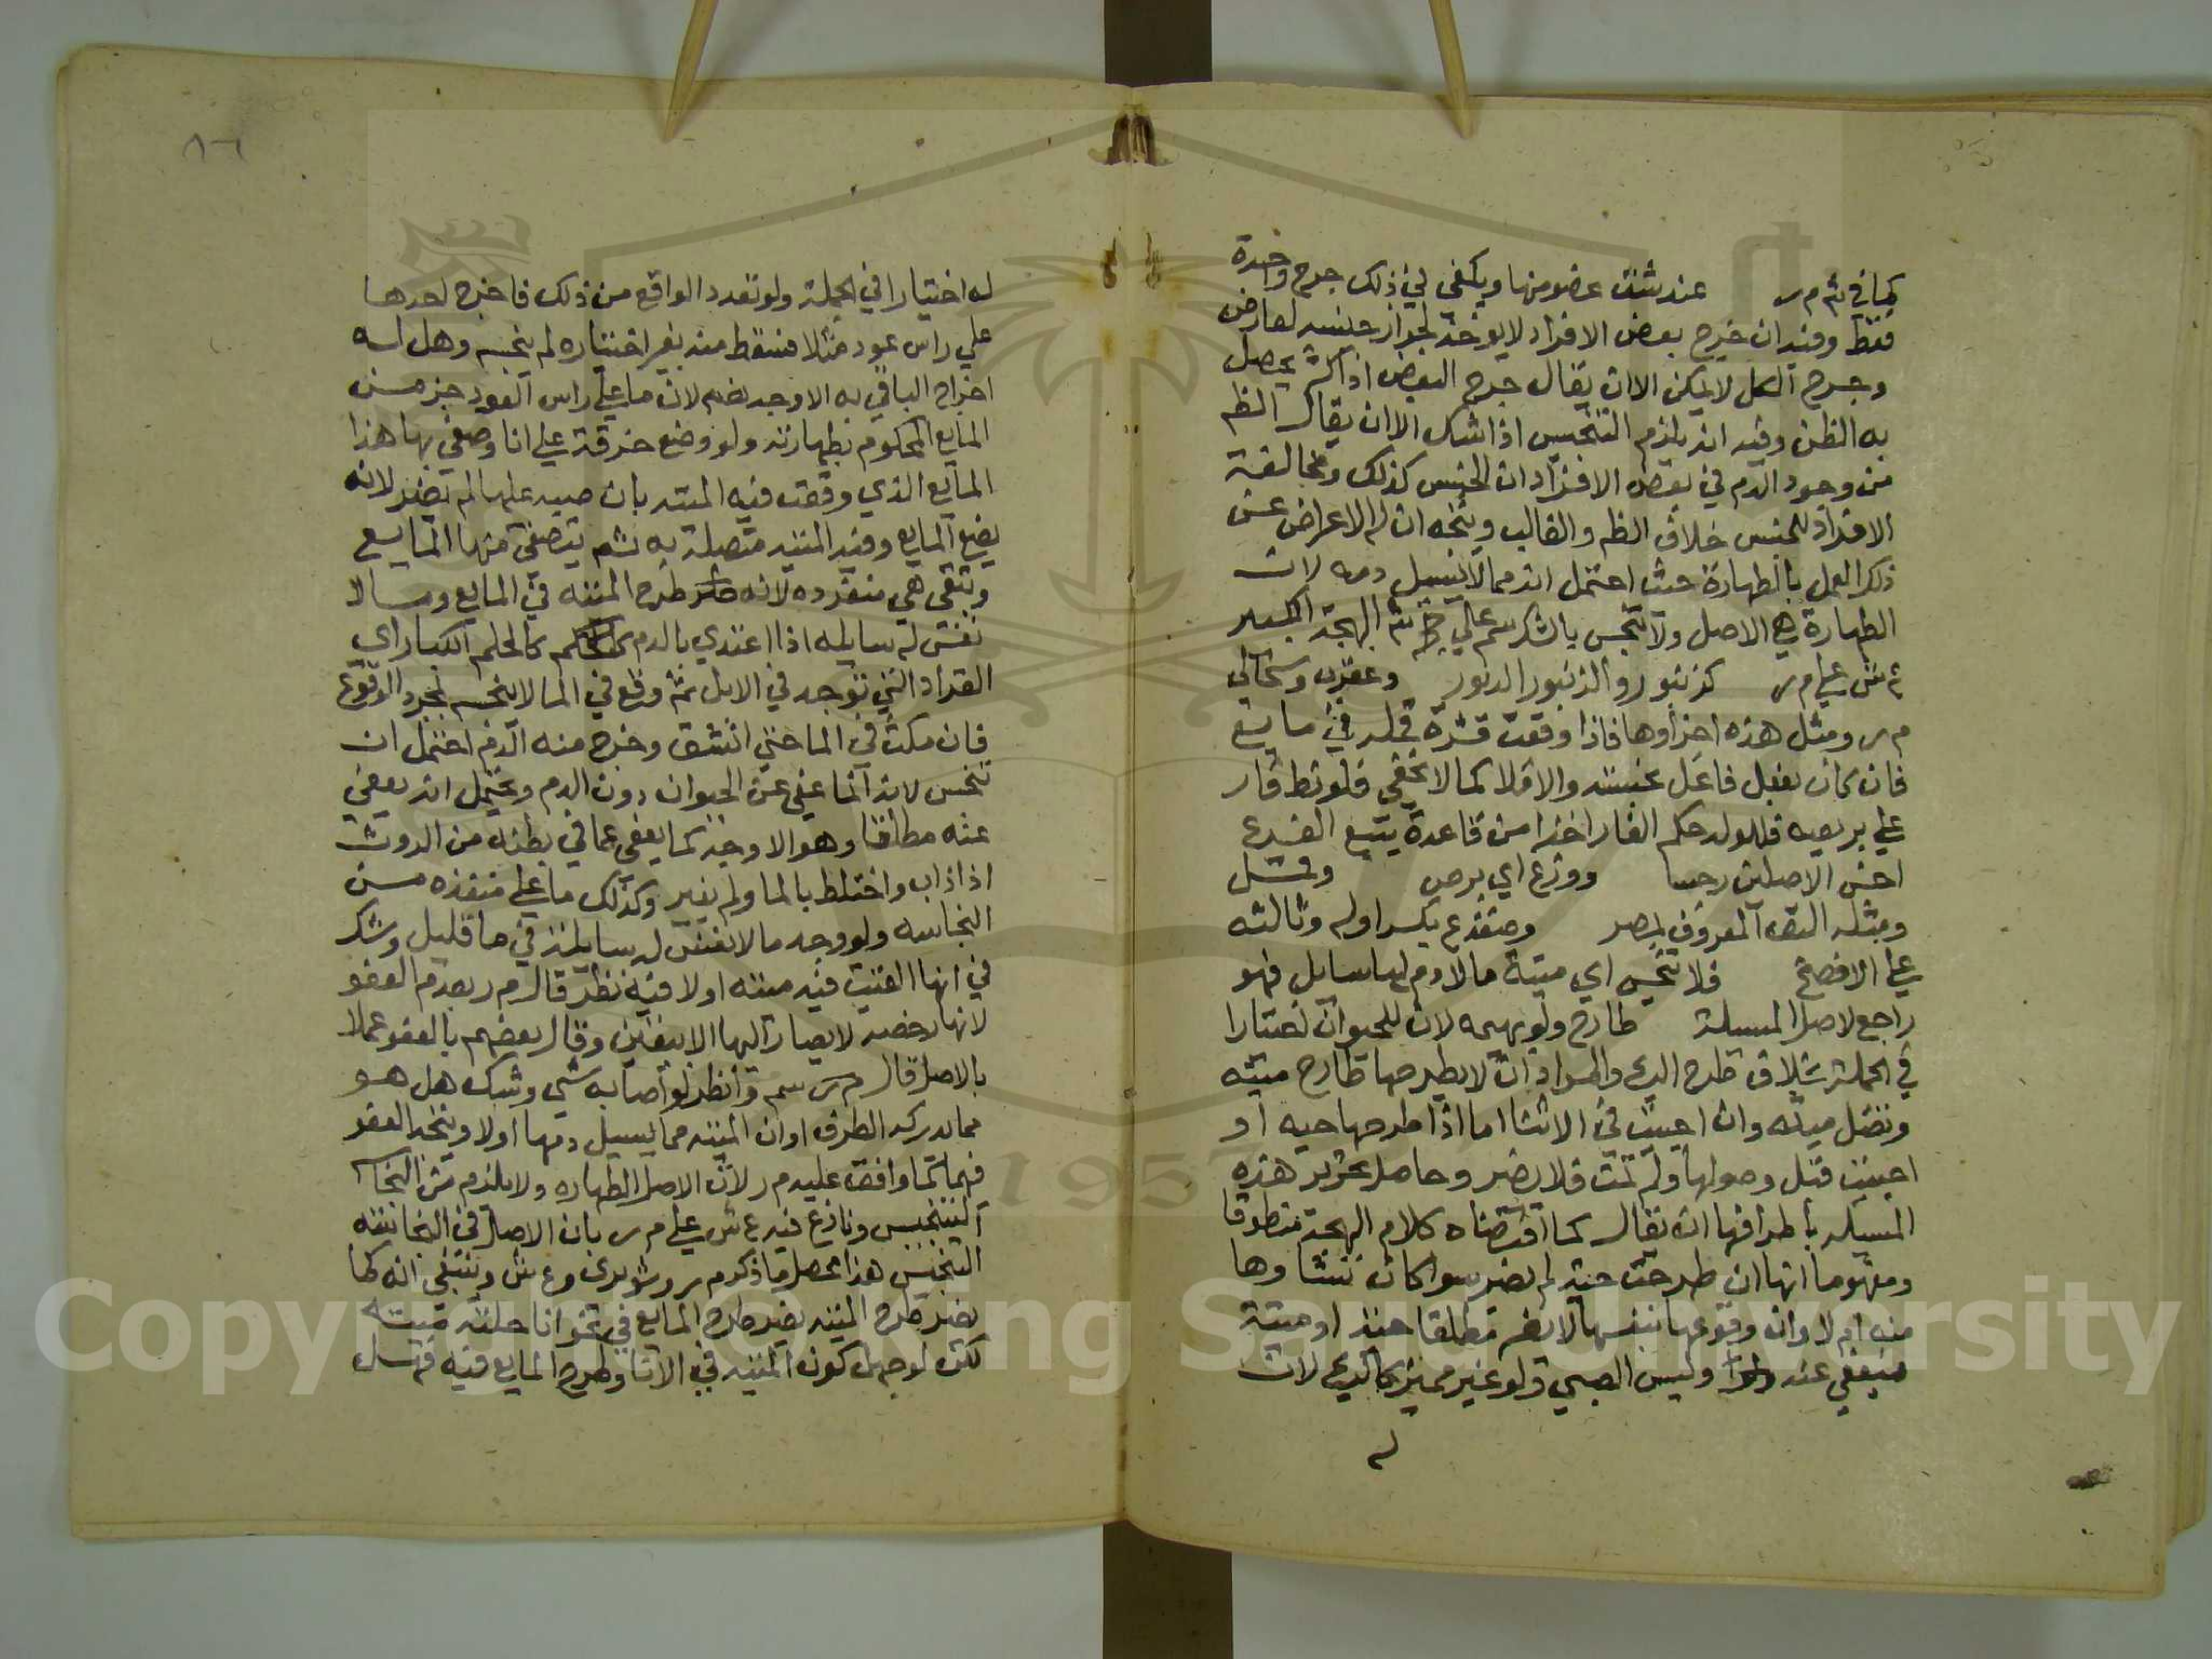 كما في شم م ر عند شق عضو منها ويكفي في ذلك جرح واحدة
فقط وفيه ان جرح بعض الافراد لا يوخذ لجواز جنسه لعارض
وجرح الكل لا يمكن الا ان يقال جرح البعض اذا كثر يحصل
به الظن وفيه انه يلزم التنجيس اذا شك الا ان يقال الظم
من وجود الدم في بعض الافراد ان الجنس كذلك ومخالفة
الافراد للجنس خلاف الظم والغالب ويتجه ان له الاعراض عن
ذلك العمل بالطهارة حيث احتمل انه مما لا يسيل دمه لان
الطهارة هي الاصل ولا تنجس بالشك سم علي شم البهجة الكبير
ع ش علي م ر كزنبور والزنبور الدبور وعقرب وسحالي
م ر ومثل هذه اجزاوها فاذا وقعت قشرة قمله في مايع
فان كان بفعل فاعل نجسته والا فلا كما لا يخفي فلو نط فار
علي بريعيه فللولد حكم الفار اخذا من قاعدة يتبع الفرع
اخس الاصلين رجسا ووزغ اي برص وقمل
ومثله البق المعروف بمصر وضفدع بكسر اوله وثالثه
علي الافصح فلا تنجس اي ميتة ما لا دم لها سايل فهو
راجع لاصل المسيلة طارح ولو بهيمه لان للحيوان اختيارا
في الجملة بخلاف طرح الريح والمراد ان لا يطرحها طارح ميته
وتصل ميته وان احييت في الاثنا اما اذا طرحها حيه او
احييت قبل وصولها ولم تمت فلا يضر وحاصل تحرير هذه
المسيله باطرافها ان يقال كما اقتضاه كلام البهجة منطوقا
ومفهوما انها ان طرحت حية لم يضر سوا كان نشاوها
منه ام لا وان وقوعها بنفسها لا يضر مطلقا حية او ميتة
فيعفي عنه وليس الصبي ولو غير مميز كالريح لان
له
٨٦
له اختيارا في الجملة ولو تعدد الواقع من ذلك فاخرج احدها
علي راس عود مثلا فسقط منه بغير اختياره لم ينجسه وهل له
اخراج الباقي به الاوجه نعم لان ما علي راس العود جز من
المايع المحكوم بطهارته ولو وضع خرقة علي انا وصفي بها هذا
المايع الذي وقعت فيه الميتة بان صبه عليها لم يضر لانه
يضع المايع وفيه الميته متصلة به ثم يتصفي منها المايع
وتبقي هي منفرده لانه طرح الميته في المايع وما لا
نفس له سايله اذا اغتذي بالدم كالحلم الكبار اي
القراد التي توجد في الابل ثم وقع في الما لا ينجسه لمجرد الوقوع
فان مكث في الما حتي انشق وخرج منه الدم احتمل ان
تنجس لانه انما عفي عن الحيوان دون الدم ويحتمل انه يعفي
عنه مطلقا وهو الاوجه كما يعفي عما في بطنه من الروث
اذا ذاب واختلط بالما ولم يغير وكذلك ما علي منفذه من
النجاسه ولو وجد ما لا نفس له سايلة في ما قليل وشك
في انها القيت فيه ميته اولا فيه نظر قال م ر بعدم العفو
لانها رخصه لا يصار اليها الا بيقين وقال بعضهم بالعفو عملا
بالاصل قال م ر سم وانظر لو اصابه شي وشك هل هو
مما يدركه الطرف او ان الميته مما يسيل دمها اولا ويتجه العفو
فيهما كما وافق عليه م ر لان الاصل الطهاره ولا يلزم من النجاسه
التنجيس ونازع فيه ع ش علي م ر بان الاصل في النجاسه
التنجيس هذا محصل ما ذكره م ر وشوبري وع ش وينبغي انه كما
يضر طرح الميته يضر طرح المايع في نحو انا حلته ميته
لكن لو جهل كون الميته في الانا وطرح المايع فيه فهل